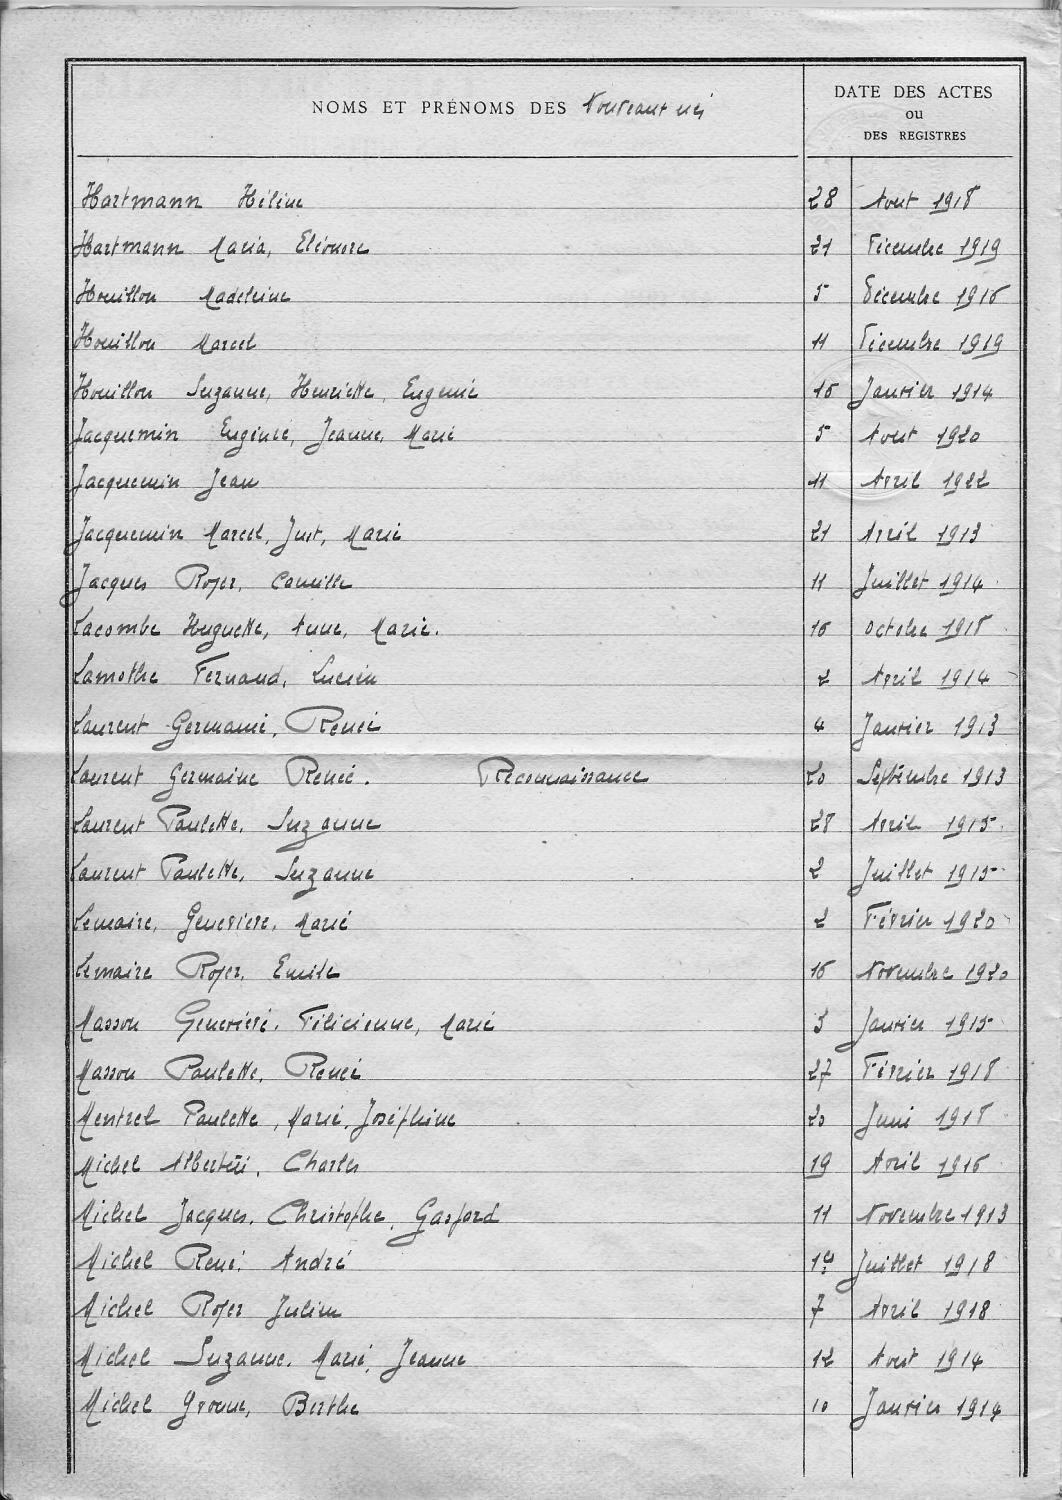 NOMS ET PRÉNOMS DES Nouveaux nés
DATE DES ACTES
ou
DES REGISTRES
Hartmann Hélène 28 Aout 1918
Hartmann Maria, Eléonore 21 Décembre 1919
Houillon Madeleine 5 Décembre 1916
Houillon Marcel 11 Décembre 1919
Houillon Suzanne, Henriette, Eugenie 16 Janvier 1914
Jacquemin Eugénie, Jeanne, Marie 5 Aout 1920
Jacquemin Jean 11 Avril 1922
Jacquemin Marcel, Just, Marie 21 Avril 1913
Jacques Roger, Camille 11 Juillet 1914
Lacombe Huguette, Anne, Marie. 16 Octobre 1918
Lamothe Fernand, Lucien 2 Avril 1914
Laurent Germaine, Renée 4 Janvier 1913
Laurent Germaine Renée. Reconnaissance 20 Septembre 1913
Laurent Paulette, Suzanne 28 Avril 1915
Laurent Paulette, Suzanne 2 Juillet 1915
Lemaire, Geneviève, Marie 2 Février 1920
Lemaire Roger, Emile 16 Novembre 1920
Masson Geneviève, Félicienne, Marie 3 Janvier 1915
Masson Paulette, Renée 27 Février 1918
Mentrel Paulette, Marie, Joséphine 20 Juin 1918
Michel Charles 19 Avril 1916
Michel Jacques, Christophe, Gaspard 11 Novembre 1913
Michel René, André 1er Juillet 1918
Michel Roger Julien 7 Avril 1918
Michel Suzanne, Marie, Jeanne 12 Aout 1914
Michel Yvonne, Berthe 10 Janvier 1914